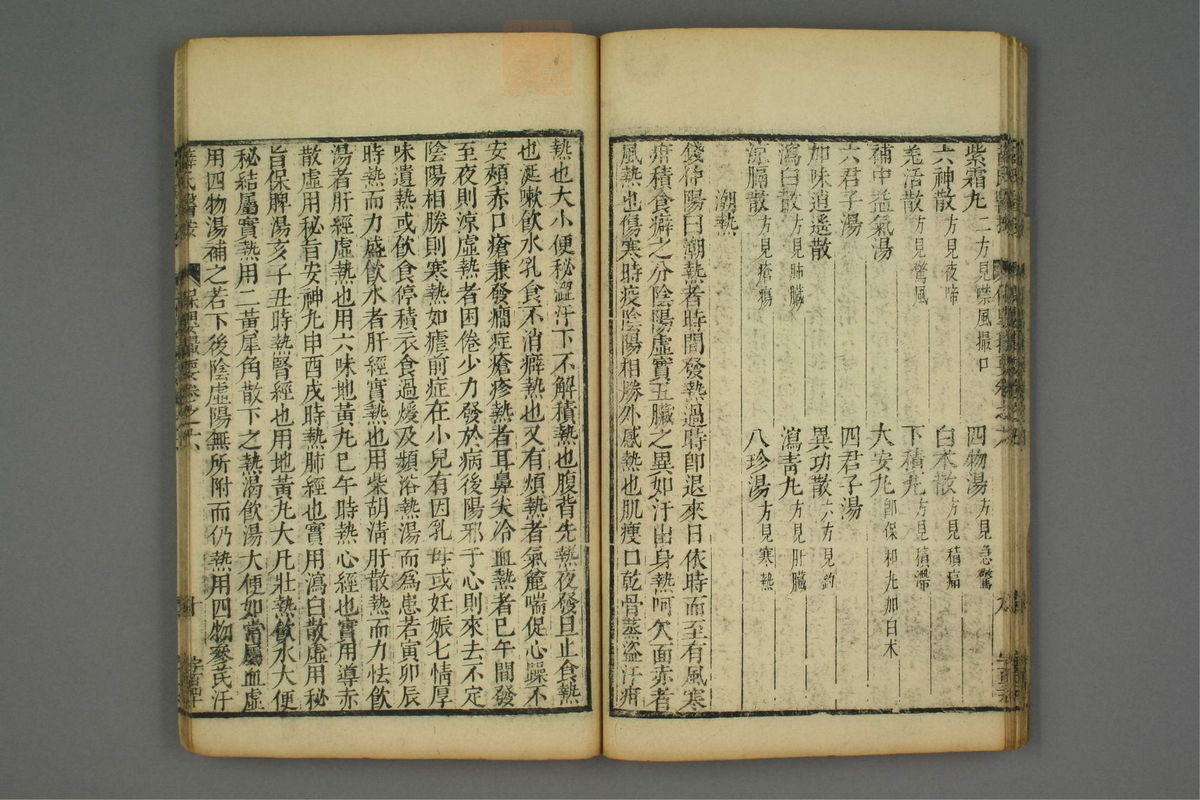 紫霜丸 二方見噤風撮口 四物湯 方見急驚
六神散 方見夜啼 白朮散 方見積痛
羗活散 方見驚風 下積丸 方見積滯
補中益氣湯 大安丸 卽保和丸加白朮
六君子湯 四君子湯
加味逍遥散 方見肺臓 異功散 六方見
瀉白散 瀉青丸 方見肝臓
涼膈散 方見瘡瘍 八珍湯 方見寒熱
潮熱
錢仲陽曰潮熱者時間發熱過時卽退來日依時而至有風寒
疳積食癖之分陰陽虚實五臓之異如汗出身熱呵欠面赤者
風熱也傷寒時疫陰陽相勝外感熱也肌瘦口乾骨蒸盜汗疳
熱也大小便秘澀汗下不解積熱也腹背先熱夜發旦止食熱
也涎嗽飲水乳食不消癖熱也又有煩熱者氣麄喘促心躁不
安頰赤口瘡兼發癎症瘡疹熱者耳鼻尖冷血熱者巳午間發
至夜則涼虚熱者困倦少力發於病後陽邪干心則來去不定
陰陽相勝則寒熱如瘧前症在小兒有因乳母或妊娠七情厚
味遺熱或飲食停積衣食過煖及頻浴熱湯而爲患若寅卯辰
時熱而力盛飲水者肝經實熱也用柴胡淸肝散熱而力怯飲
湯者肝經虚熱也用六味地黄丸巳午時熱心經也實用導赤
散虚用秘旨安神丸申酉戌時熱肺經也實用瀉白散虚用秘
旨保脾湯亥子丑時熱腎經也用地黄丸大凡壯熱飲水大便
秘結屬實熱用二黄犀角散下之熱渴飲湯大便如常屬血虚
用四物湯補之若下後陰虚陽無所附而仍熱用四物參芪汗
薛氏醫按 保嬰撮要卷之六 十